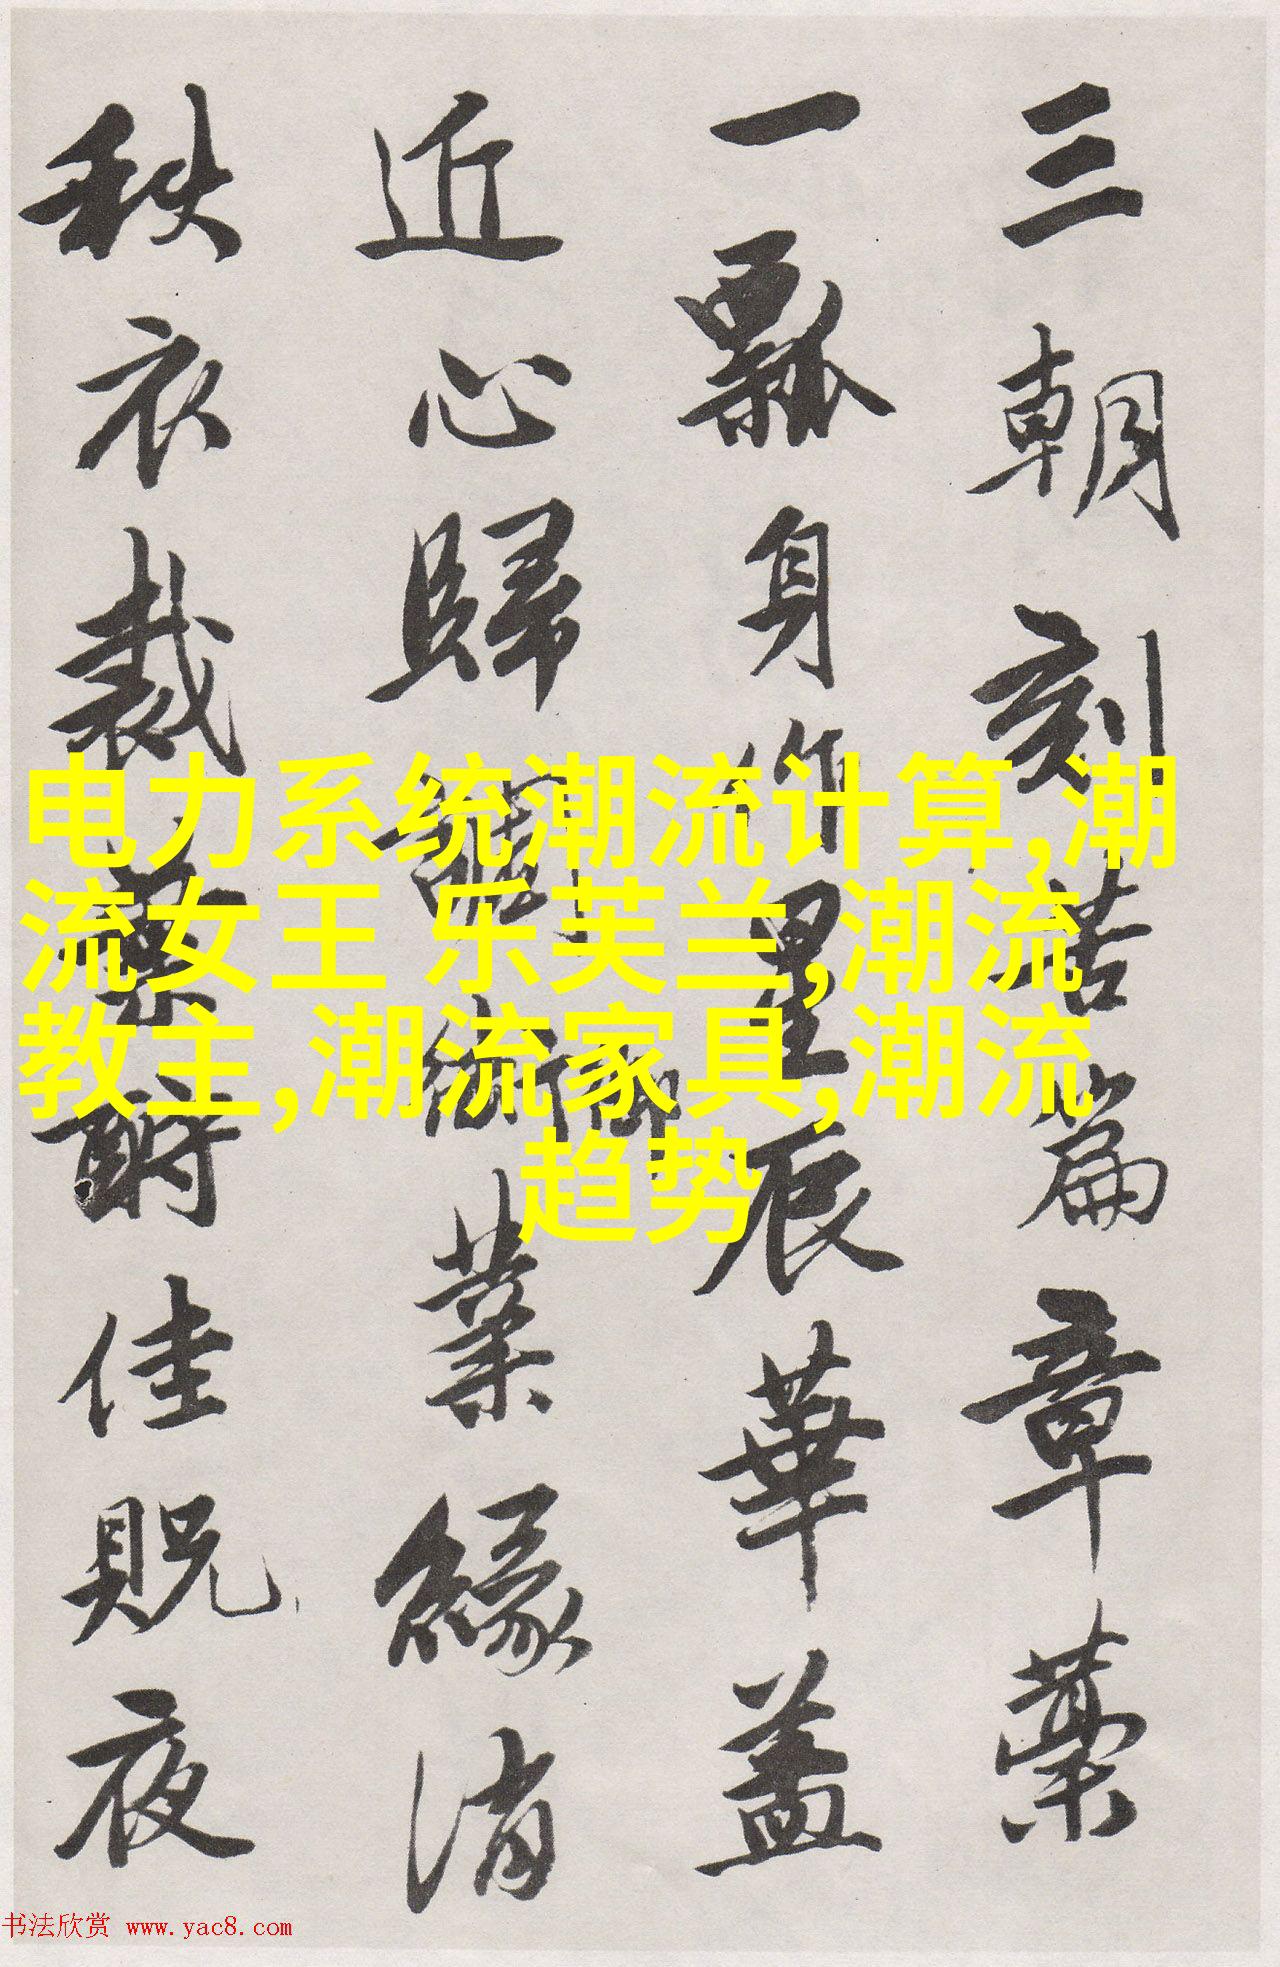 三朝刻苦篇章藁
一瓢身作星辰華蓋
近心歸業緣消
衣裁酬佳貺夜
电力系统潮流计算,潮
流女王 乐芙兰,潮流
教主,潮流家具,潮流
趋势
书法欣赏 www.yac8.com